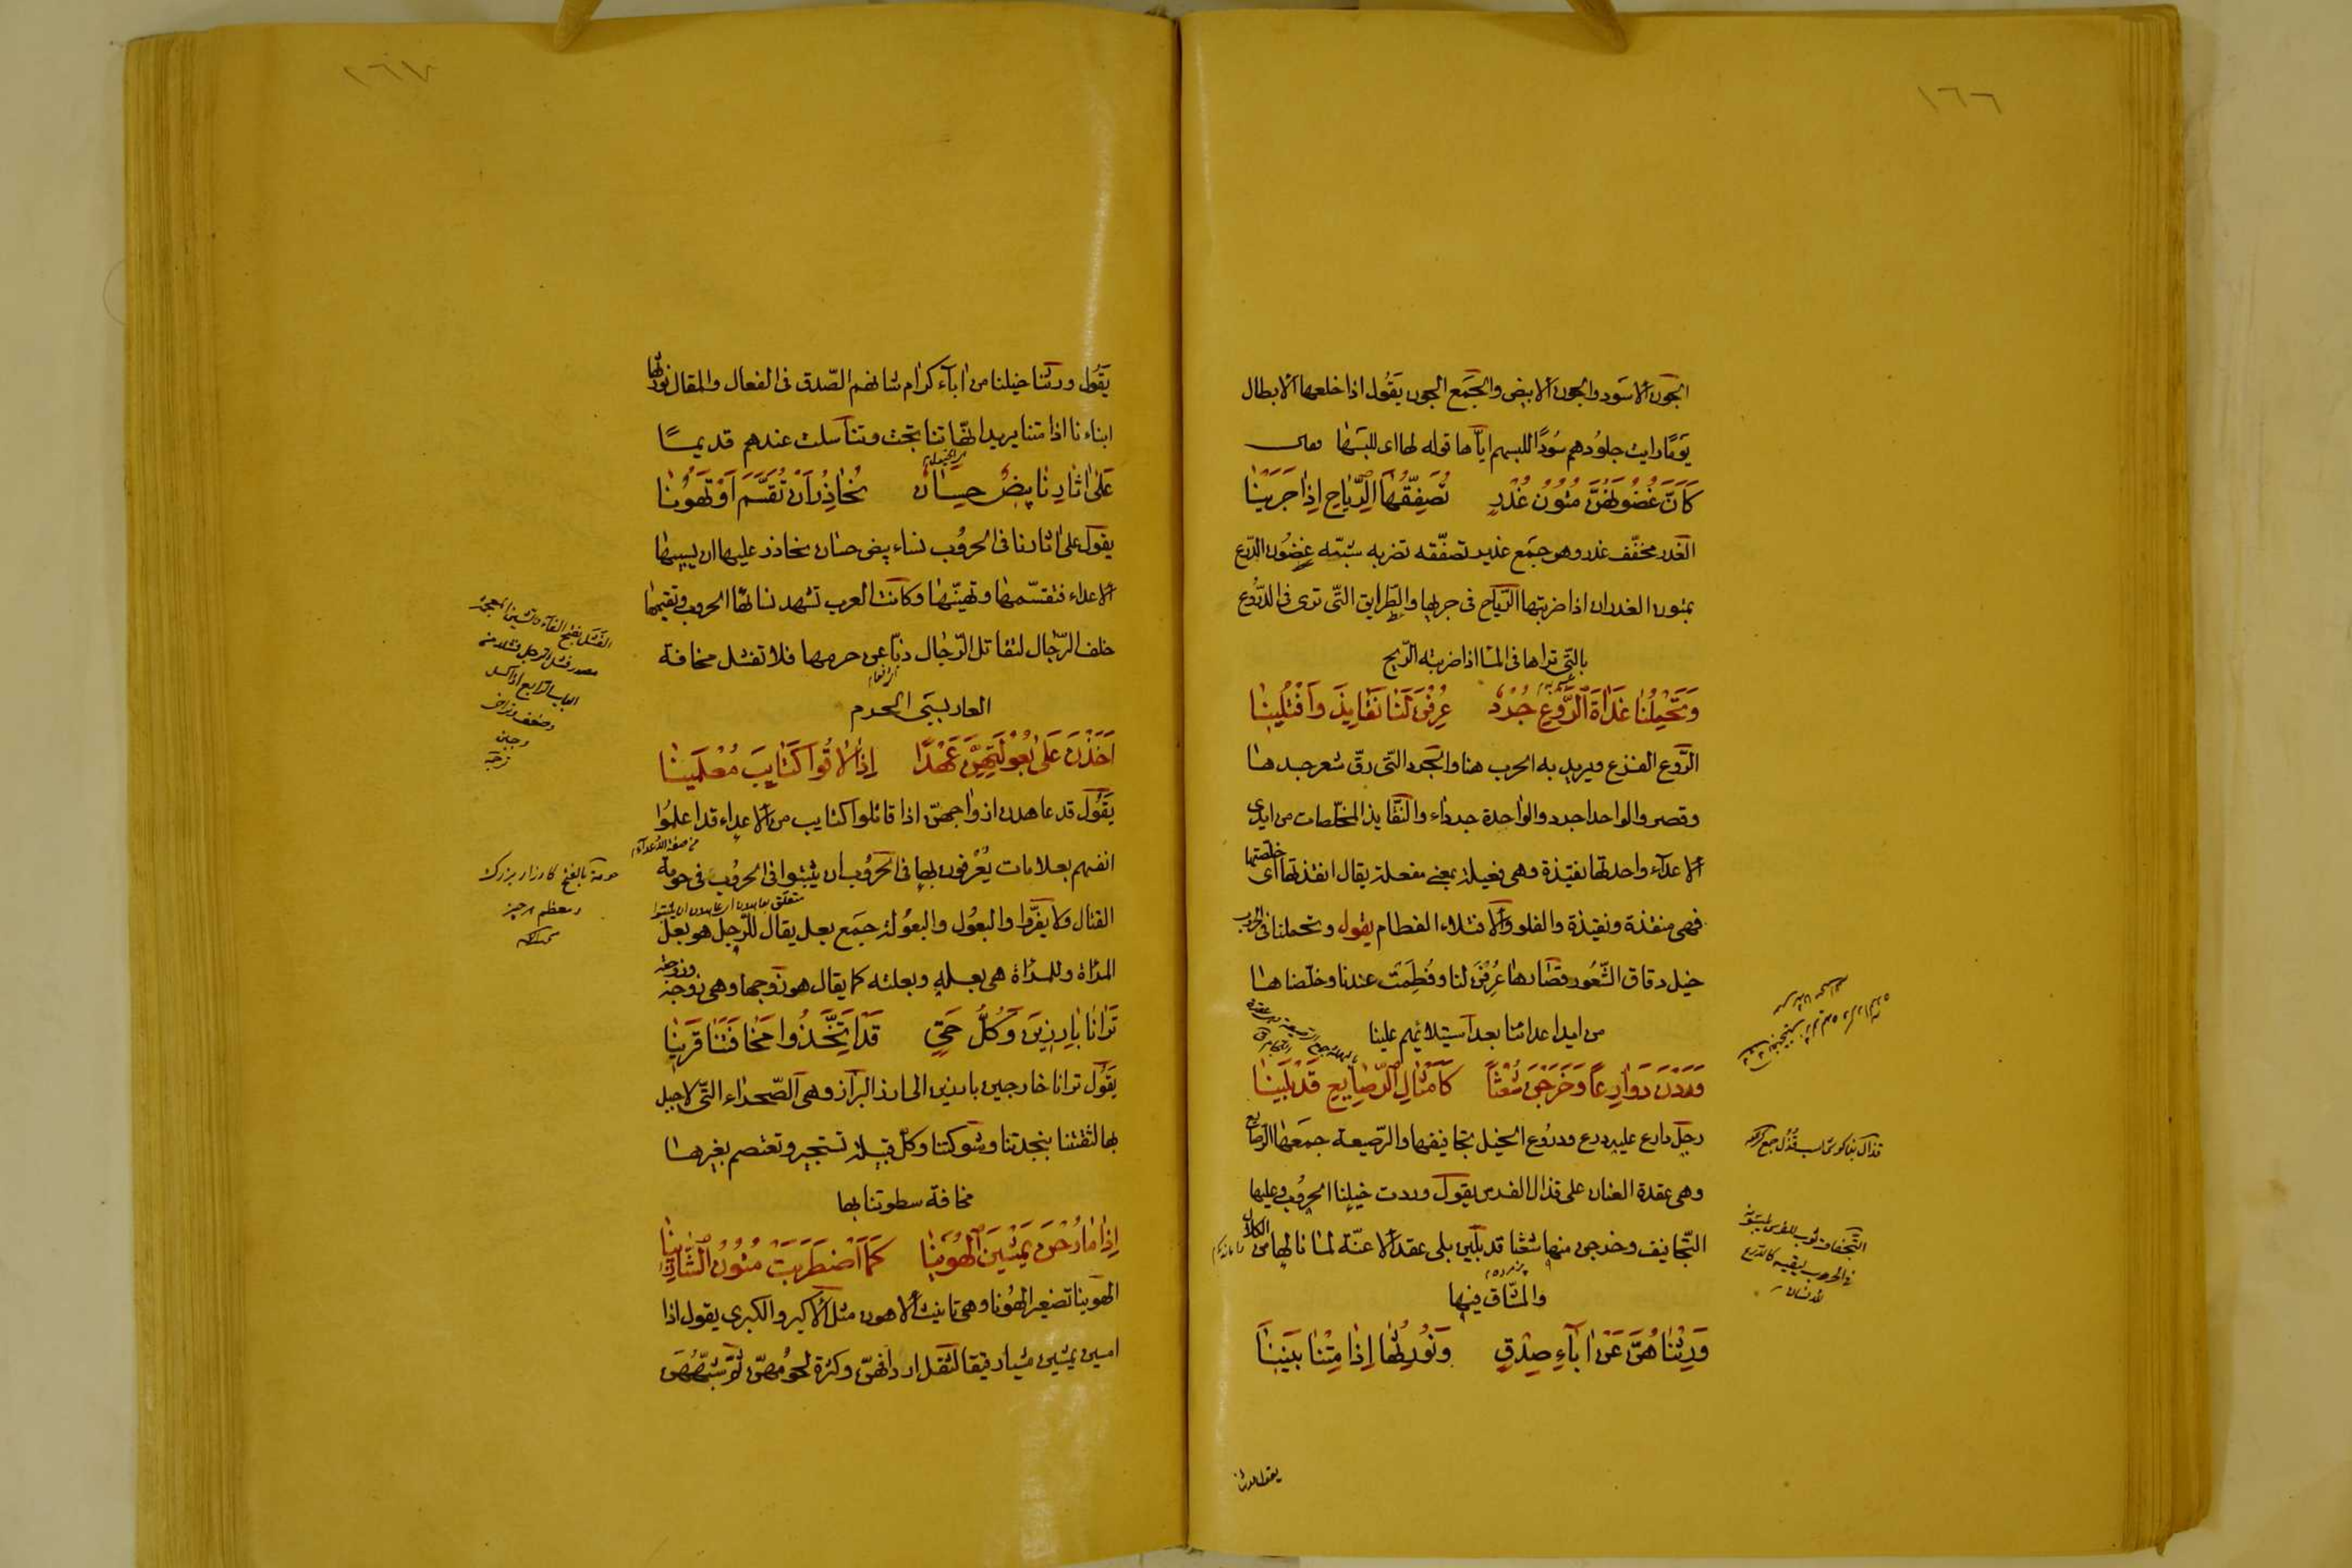 ١٦٦
الجون الاسود والجون الابيض والجمع الجون يقول اذا خلعها الابطال
يوما رايت جلودهم سودا للبسهم اياها قوله لها اى للبسها
كَاَنَّ غُضُونَهُنَّ مُتُونُ غُدْرٍ تُصَفِّقُهَا الرِّيَاحُ اِذَا جَرَيْنَا
الغدر مخفف غدر وهو جمع غدير تصفقه تضربه شبه غضون الدرع
بمتون الغدران اذا ضربتها الرياح فى جريها والطرايق التى ترى فى الدروع
بالتى تراها فى الماء اذا ضربته الريح
وَتَحْمِلُنَا غَدَاةَ الرَّوْعِ جُرْدٌ عُرِفْنَ لَنَا نَقَايِذَ وَافْتُلِينَا
الروع الفزع ويريد به الحرب هنا والجرد التى رق شعر جسدها
وقصر والواحد اجرد والواحدة جرداء والنقايذ المخلصات من ايدى
الاعداء واحدتها نقيذة وهى فعيلة بمعنى مفعلة يقال انقذتها اى خلصتها
فهى منقذة ونقيذة والفلو والافتلاء الفطام يقول وتحملنا فى الحرب
خيل دقاق الشعور قصارها عرفن لنا وفطمت عندنا وخلصناها
من ايد اعدائنا بعد استيلائهم علينا
وَرَدْنَ دَوَارِعًا وَخَرَجْنَ شُعْثًا كَاَمْثَالِ الرَّصَايِعِ قَدْ بَلِينَا
رجل دارع عليه درع ودروع الخيل تجافيفها والرصيعة جمعها الرصايع
وهى عقدة العنان على قذال الفرس يقول وردت خيلنا الحروب وعليها
التجافيف وخرجن منها شعثا قد بلين بلى عقد الاعنة لما نالها من الكلال
والمشاق فيها
وَرِثْنَاهُنَّ عَنْ آبَاءِ صِدْقٍ وَنُورِثُهَا اِذَا مِتْنَا بَنِينَا
يقول ورثنا
قذال جمع
التجفاف
فى الحروب ليقيه كالدرع
١٦٧
يقول ورثنا خيلنا من اباء كرام شانهم الصدق فى الفعال والمقال نورثها
ابناءنا اذا متنا يريد انها تناتجت وتناسلت عندهم قديما
عَلَى آثَارِنَا بِيضٌ حِسَانٌ نُحَاذِرُ اَنْ تُقَسَّمَ اَوْ تَهُونَا
يقول على اثارنا فى الحروب نساء بيض حسان نحاذر عليها ان يسبيها
الاعداء فتقسمها وتهينها وكانت العرب تشهد نساءها الحروب وتقيمها
خلف الرجال لتقاتل الرجال ذبا عن حرمها فلا تفشل مخافة
العار بسبى الحرم
اَخَذْنَ عَلَى بُعُولَتِهِنَّ عَهْدًا اِذَا لَاقَوْا كَتَايِبَ مُعْلَمِينَا
يقول قد عاهدن ازواجهن اذا قاتلوا كتايب من الاعداء قد اعلموا
انفسهم بعلامات يعرفون بها فى الحروب ان يثبتوا فى الحروب فى حومة
القتال ولا يفروا والبعول والبعولة جمع بعل يقال للرجل هو بعل
المراة وللمراة هى بعله وبعلته كما يقال هو زوجها وهى زوجه وزوجته
تَرَانَا بَارِزِينَ وَكُلُّ حَيٍّ قَدِ اتَّخَذُوا مَخَافَتَنَا قَرِينَا
يقول ترانا خارجين بارزين الى البراز وهى الصحراء التى لا جبل
بها لثقتنا بنجدتنا وشوكتنا وكل قبيلة تستجير وتعتصم بغيرها
مخافة سطوتنا بها
اِذَا مَا رُحْنَ يَمْشِينَ الْهُوَيْنَا كَمَا اضْطَرَبَتْ مُتُونُ الشَّارِبِينَا
الهوينا تصغير الهونا وهى تانيث الاهون مثل الاكبر والكبرى يقول اذا
امسين يمشين مشيا رفيقا لثقل اردافهن وكثرة لحومهن ثم شبههن
الفشل بفتح الفاء والشين المعجمة
مصدر فشل الرجل فشلا من
الباب الرابع اذا كسل
وضعف وتراخى
وجبن
حومة بالفتح كارزار بزرك
ومعظم هر چيز